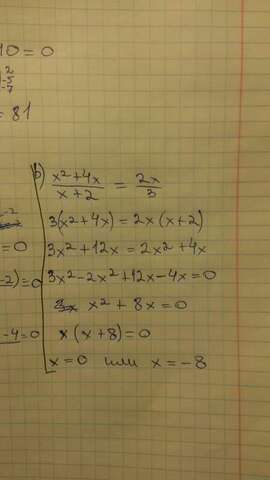 10 = 0
= 81
б) x²+4x / x+2 = 2x / 3
3(x²+4x) = 2x(x+2)
= 0
3x²+12x = 2x²+4x
-2) = 0
3x²-2x²+12x-4x=0
x²+8x=0
-4=0
x(x+8)=0
x=0 или x=-8